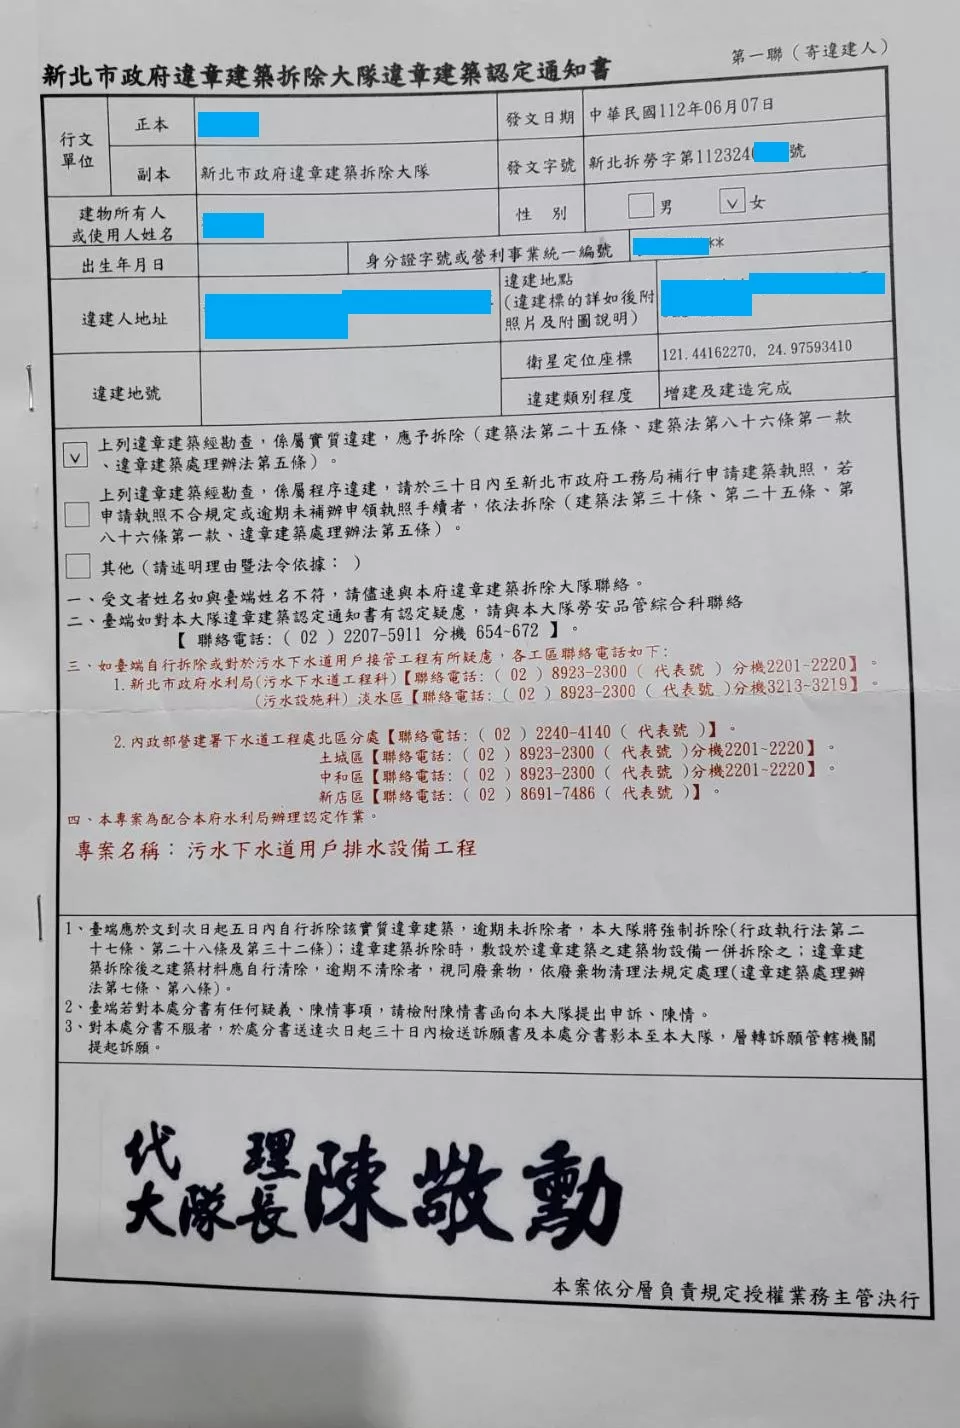 第一聯（寄違建人）
新北市政府違章建築拆除大隊違章建築認定通知書
行文單位
正本
發文日期
中華民國112年06月07日
副本
新北市政府違章建築拆除大隊
發文字號
新北拆勞字第112324
號
建物所有人
或使用人姓名
性 別
男
v 女
出生年月日
身分證字號或營利事業統一編號
**
違建人地址
違建地點
(違建標的詳如後附
照片及附圖說明)
違建地號
衛星定位座標
121.44162270, 24.97593410
違建類別程度
增建及建造完成
v 上列違章建築經勘查，係屬實質違建，應予拆除（建築法第二十五條、建築法第八十六條第一款
、違章建築處理辦法第五條）。
上列違章建築經勘查，係屬程序違建，請於三十日內至新北市政府工務局補行申請建築執照，若
申請執照不合規定或逾期未補辦申領執照手續者，依法拆除（建築法第三十條、第二十五條、第
八十六條第一款、違章建築處理辦法第五條）。
其他（請述明理由暨法令依據： ）
一、受文者姓名如與臺端姓名不符，請儘速與本府違章建築拆除大隊聯絡。
二、臺端如對本大隊違章建築認定通知書有認定疑慮，請與本大隊勞安品管綜合科聯絡
【 聯絡電話：( 02 ) 2207-5911 分機 654-672 】。
三、如臺端自行拆除或對於污水下水道用戶接管工程有所疑慮，各工區聯絡電話如下：
1.新北市政府水利局(污水下水道工程科)【聯絡電話：( 02 ) 8923-2300 ( 代表號 ) 分機2201~2220】。
(污水設施科) 淡水區【聯絡電話：( 02 ) 8923-2300 ( 代表號 )分機3213~3219】。
2.內政部營建署下水道工程處北區分處【聯絡電話：( 02 ) 2240-4140 ( 代表號 )】。
土城區【聯絡電話：( 02 ) 8923-2300 ( 代表號 )分機2201~2220】。
中和區【聯絡電話：( 02 ) 8923-2300 ( 代表號 )分機2201~2220】。
新店區【聯絡電話：( 02 ) 8691-7486 ( 代表號 )】。
四、本專案為配合本府水利局辦理認定作業。
專案名稱：污水下水道用戶排水設備工程
1、臺端應於文到次日起五日內自行拆除該實質違章建築，逾期未拆除者，本大隊將強制拆除(行政執行法第二
十七條、第二十八條及第三十二條)；違章建築拆除時，敷設於違章建築之建築物設備一併拆除之；違章建
築拆除後之建築材料應自行清除，逾期不清除者，視同廢棄物，依廢棄物清理法規定處理(違章建築處理辦
法第七條、第八條)。
2、臺端若對本處分書有任何疑義、陳情事項，請檢附陳情書函向本大隊提出申訴、陳情。
3、對本處分書不服者，於處分書送達次日起三十日內檢送訴願書及本處分書影本至本大隊，層轉訴願管轄機關
提起訴願。
代理
大隊長 陳敬勳
本案依分層負責規定授權業務主管決行